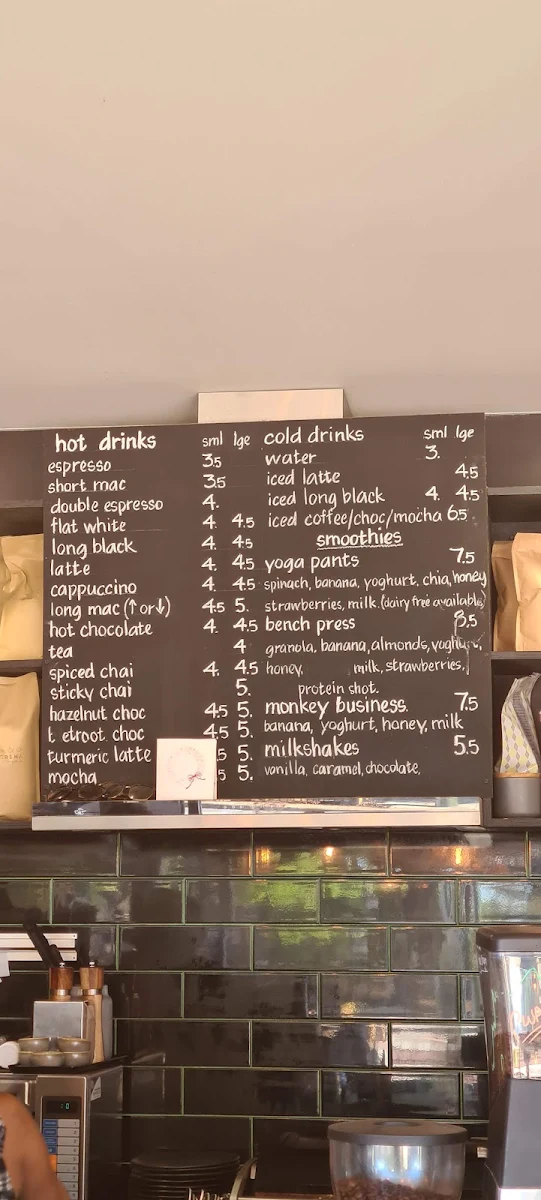 hot drinks sml lge
espresso 3.5
short mac 3.5
double espresso 4.
flat white 4. 4.5
long black 4. 4.5
latte 4. 4.5
cappuccino 4. 4.5
long mac (↑or↓) 4.5 5.
hot chocolate 4. 4.5
tea 4
spiced chai 4. 4.5
sticky chai 5.
hazelnut choc 4.5 5.
etroot choc 4.5 5.
turmeric latte .5 5.
mocha 5 5.
cold drinks sml lge
water 3.
iced latte 4.5
iced long black 4. 4.5
iced coffee/choc/mocha 6.5
smoothies
yoga pants 7.5
spinach, banana, yoghurt, chia, honey
strawberries, milk. (dairy free available)
bench press 8.5
granola, banana, almonds,
honey, milk, strawberries,
protein shot.
monkey business. 7.5
banana, yoghurt, honey, milk
milkshakes 5.5
vanilla, caramel, chocolate,